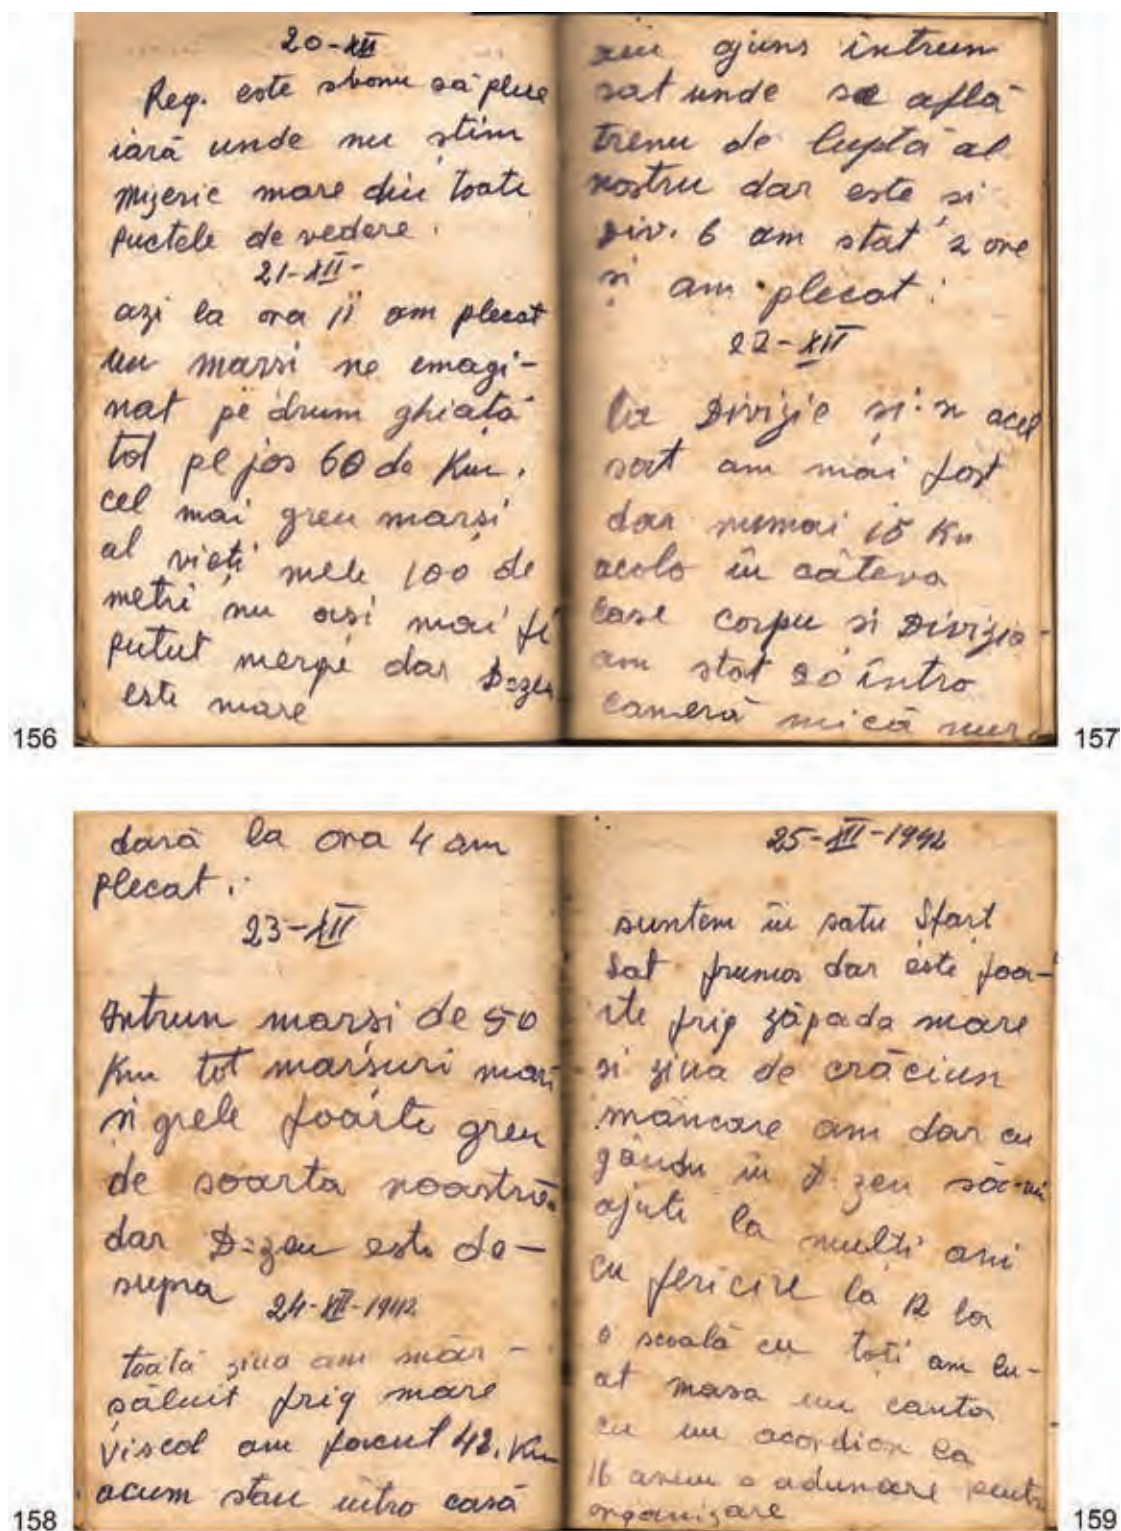 20-XII
Reg. este sbonu să plece
iară unde nu știm
Mizerie mare din toate
puctele de vedere.
21-XII-
azi la ora 11 am plecat
un marși ne emagi-
nat pe drum ghiață
tot pe jos 60 de Km.
cel mai greu marși
al vieți mele 100 de
metri nu ași mai fi
putut merge dar D-zeu
este mare
156
am ajuns intrun
sat unde se află
trenu de luptă al
nostru dar este și
Div. 6 am stat 2 ore
și am plecat.
22-XII
la Divizie și-n acel
sat am mai fost
dar numai 15 Km
acolo în câteva
case corpu și Divizia
am stat 20 întro
cameră mică mur
157
dară la ora 4 am
plecat.
23-XII
Intrun marși de 50
Km tot marșuri mari
și grele foarte greu
de soarta noastră
dar D-zeu este de-
supra
24-XII-1942
toată ziua am măr-
șăluit frig mare
viscol am facut 42. Km
acum stau intro casă
158
25-XII-1942
suntem în satu Sfart
sat frumos dar este foa-
rte frig zăpada mare
și ziua de crăciun
mâncare am dar cu
gându în D-zeu să-mi
ajute la mulți ani
cu fericire la 12 la
o scoală cu toți am lu-
at masa un canta
cu un acordion la
16 avem o adunare pentru
organizare
159